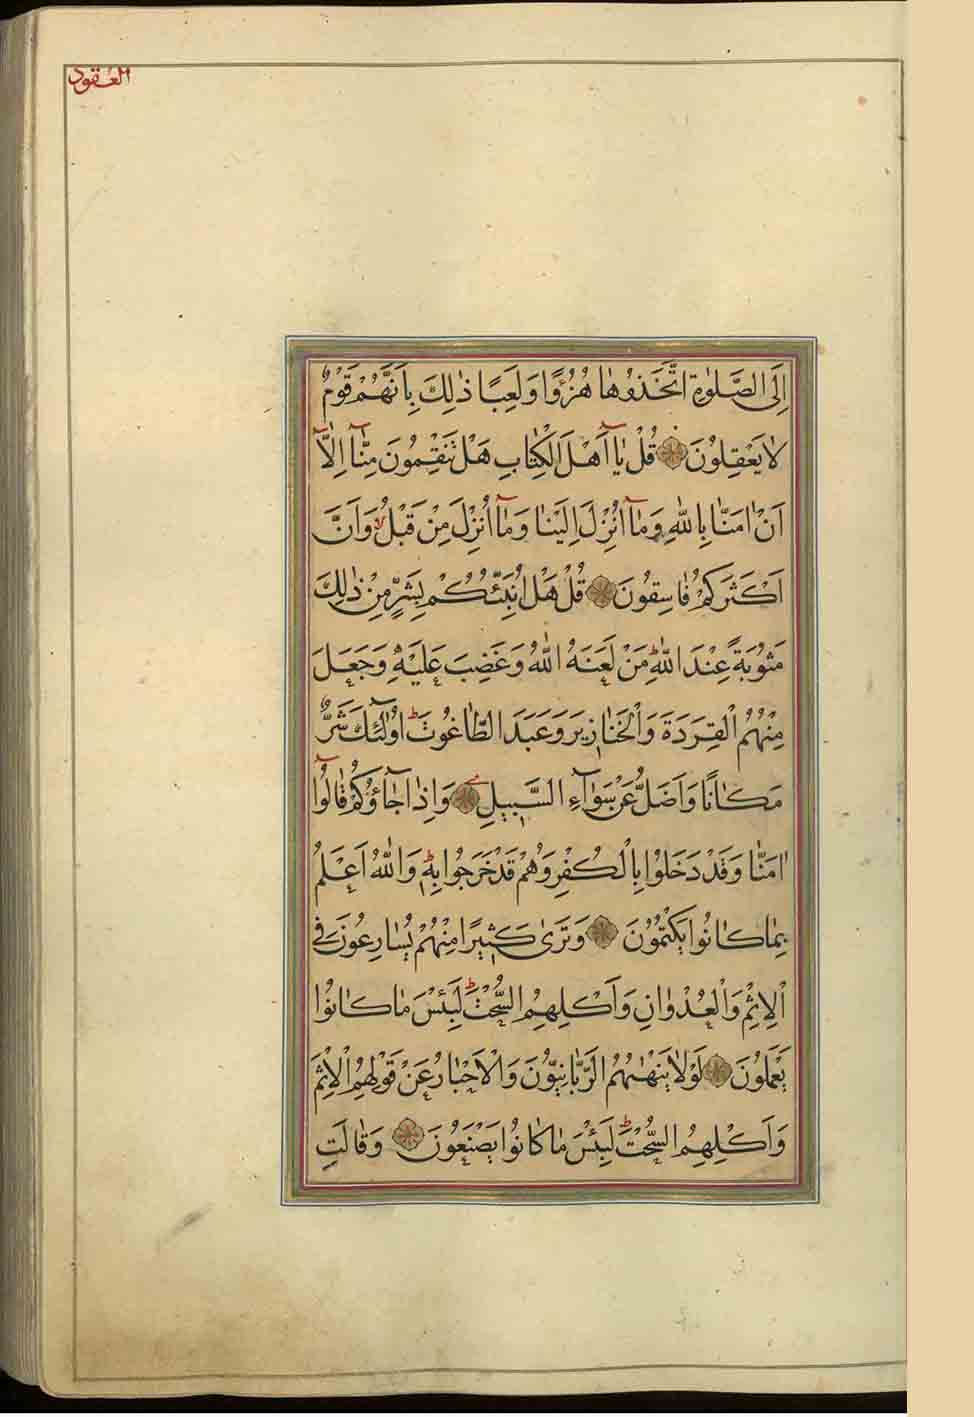 العقود
اِلَى الصَّلٰوةِ اتَّخَذُوهَا هُزُؤًا وَلَعِبًا ذٰلِكَ بِاَنَّهُمْ قَوْمٌ
لَا يَعْقِلُونَ قُلْ يَٓا اَهْلَ الْكِتَابِ هَلْ تَنْقِمُونَ مِنَّٓا اِلَّٓا
اَنْ اٰمَنَّا بِاللّٰهِ وَمَٓا اُنْزِلَ اِلَيْنَا وَمَٓا اُنْزِلَ مِنْ قَبْلُ ۙ وَاَنَّ
اَكْثَرَكُمْ فَاسِقُونَ قُلْ هَلْ اُنَبِّئُكُمْ بِشَرٍّ مِنْ ذٰلِكَ
مَثُوبَةً عِنْدَ اللّٰهِ ۜ مَنْ لَعَنَهُ اللّٰهُ وَغَضِبَ عَلَيْهِ وَجَعَلَ
مِنْهُمُ الْقِرَدَةَ وَالْخَنَازِيرَ وَعَبَدَ الطَّاغُوتَ ۜ اُو۬لٰٓئِكَ شَرٌّ
مَكَانًا وَاَضَلُّ عَنْ سَوَٓاءِ السَّبِيلِ وَاِذَا جَٓاؤُ۫كُمْ قَالُٓوا
اٰمَنَّا وَقَدْ دَخَلُوا بِالْكُفْرِ وَهُمْ قَدْ خَرَجُوا بِهِ ۜ وَاللّٰهُ اَعْلَمُ
بِمَا كَانُوا يَكْتُمُونَ وَتَرٰى كَثِيرًا مِنْهُمْ يُسَارِعُونَ فِي
الْاِثْمِ وَالْعُدْوَانِ وَاَكْلِهِمُ السُّحْتَ ۜ لَبِئْسَ مَا كَانُوا
يَعْمَلُونَ لَوْلَا يَنْهٰيهُمُ الرَّبَّانِيُّونَ وَالْاَحْبَارُ عَنْ قَوْلِهِمُ الْاِثْمَ
وَاَكْلِهِمُ السُّحْتَ ۜ لَبِئْسَ مَا كَانُوا يَصْنَعُونَ وَقَالَتِ